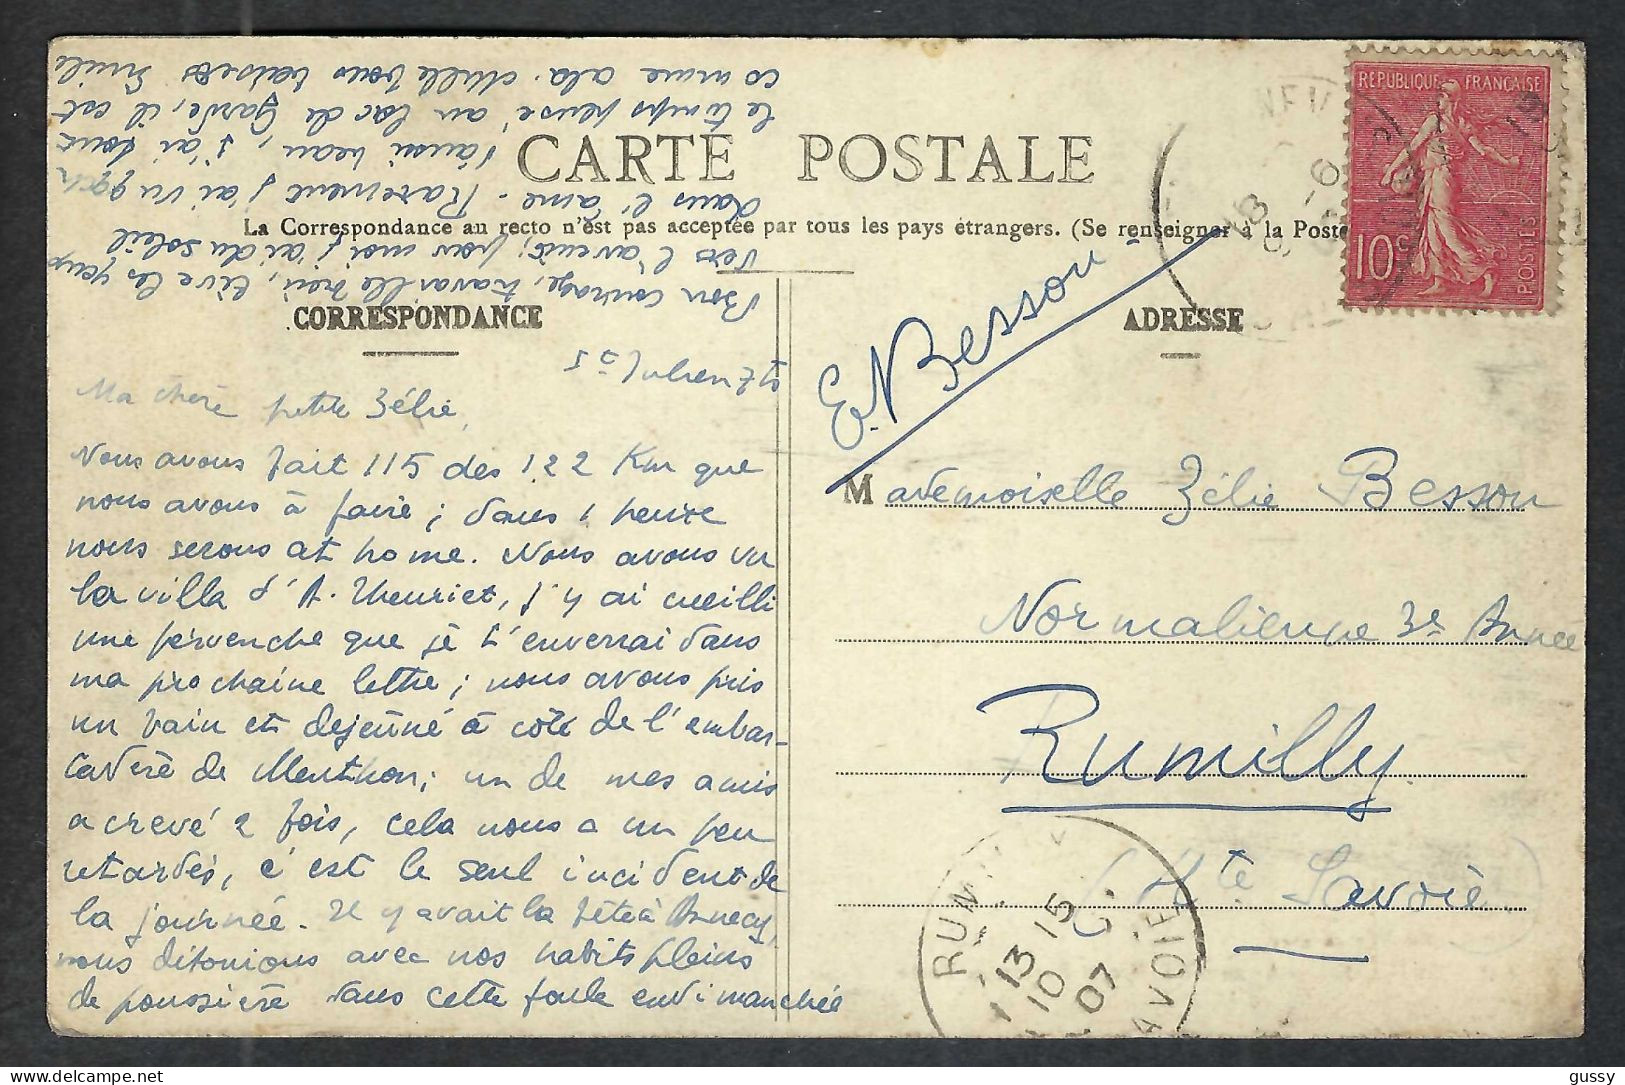 CARTE POSTALE
La Correspondance au recto n'est pas acceptée par tous les pays étrangers. (Se renseigner à la Poste
CORRESPONDANCE
ADRESSE
RÉPUBLIQUE FRANÇAISE
10c
POSTES
St Julien 5h
Ma chère petite Zélie,
Nous avons fait 115 des 122 Km que
nous avons à faire; dans 1 heure
nous serons at home. Nous avons vu
la villa d'A. Theuriet, j'y ai cueilli
une pervenche que je t'enverrai dans
ma prochaine lettre; nous avons pris
un bain et dejeûné à côté de l'embar-
cadère de Menthon; un de mes amis
a crevé 2 fois, cela nous a un peu
retardés, c'est le seul incident de
la journée. Il y avait la fête à Annecy,
nous détonions avec nos habits pleins
de poussière dans cette foule endimanchée
Bon courage, travaille bien, lève les yeux
vers l'avenir; pour moi j'ai du soleil
dans l'âme. Rarement j'ai vu
aussi beau, j'ai tout
le temps pensé au lac de Garde, il est
comme cela. Mille bons baisers Emile
E. Besson
Mademoiselle Zélie Besson
Normalienne 3e Année
Rumilly
(Hte Savoie)
RUMILLY
13 15
10
07
SAVOIE